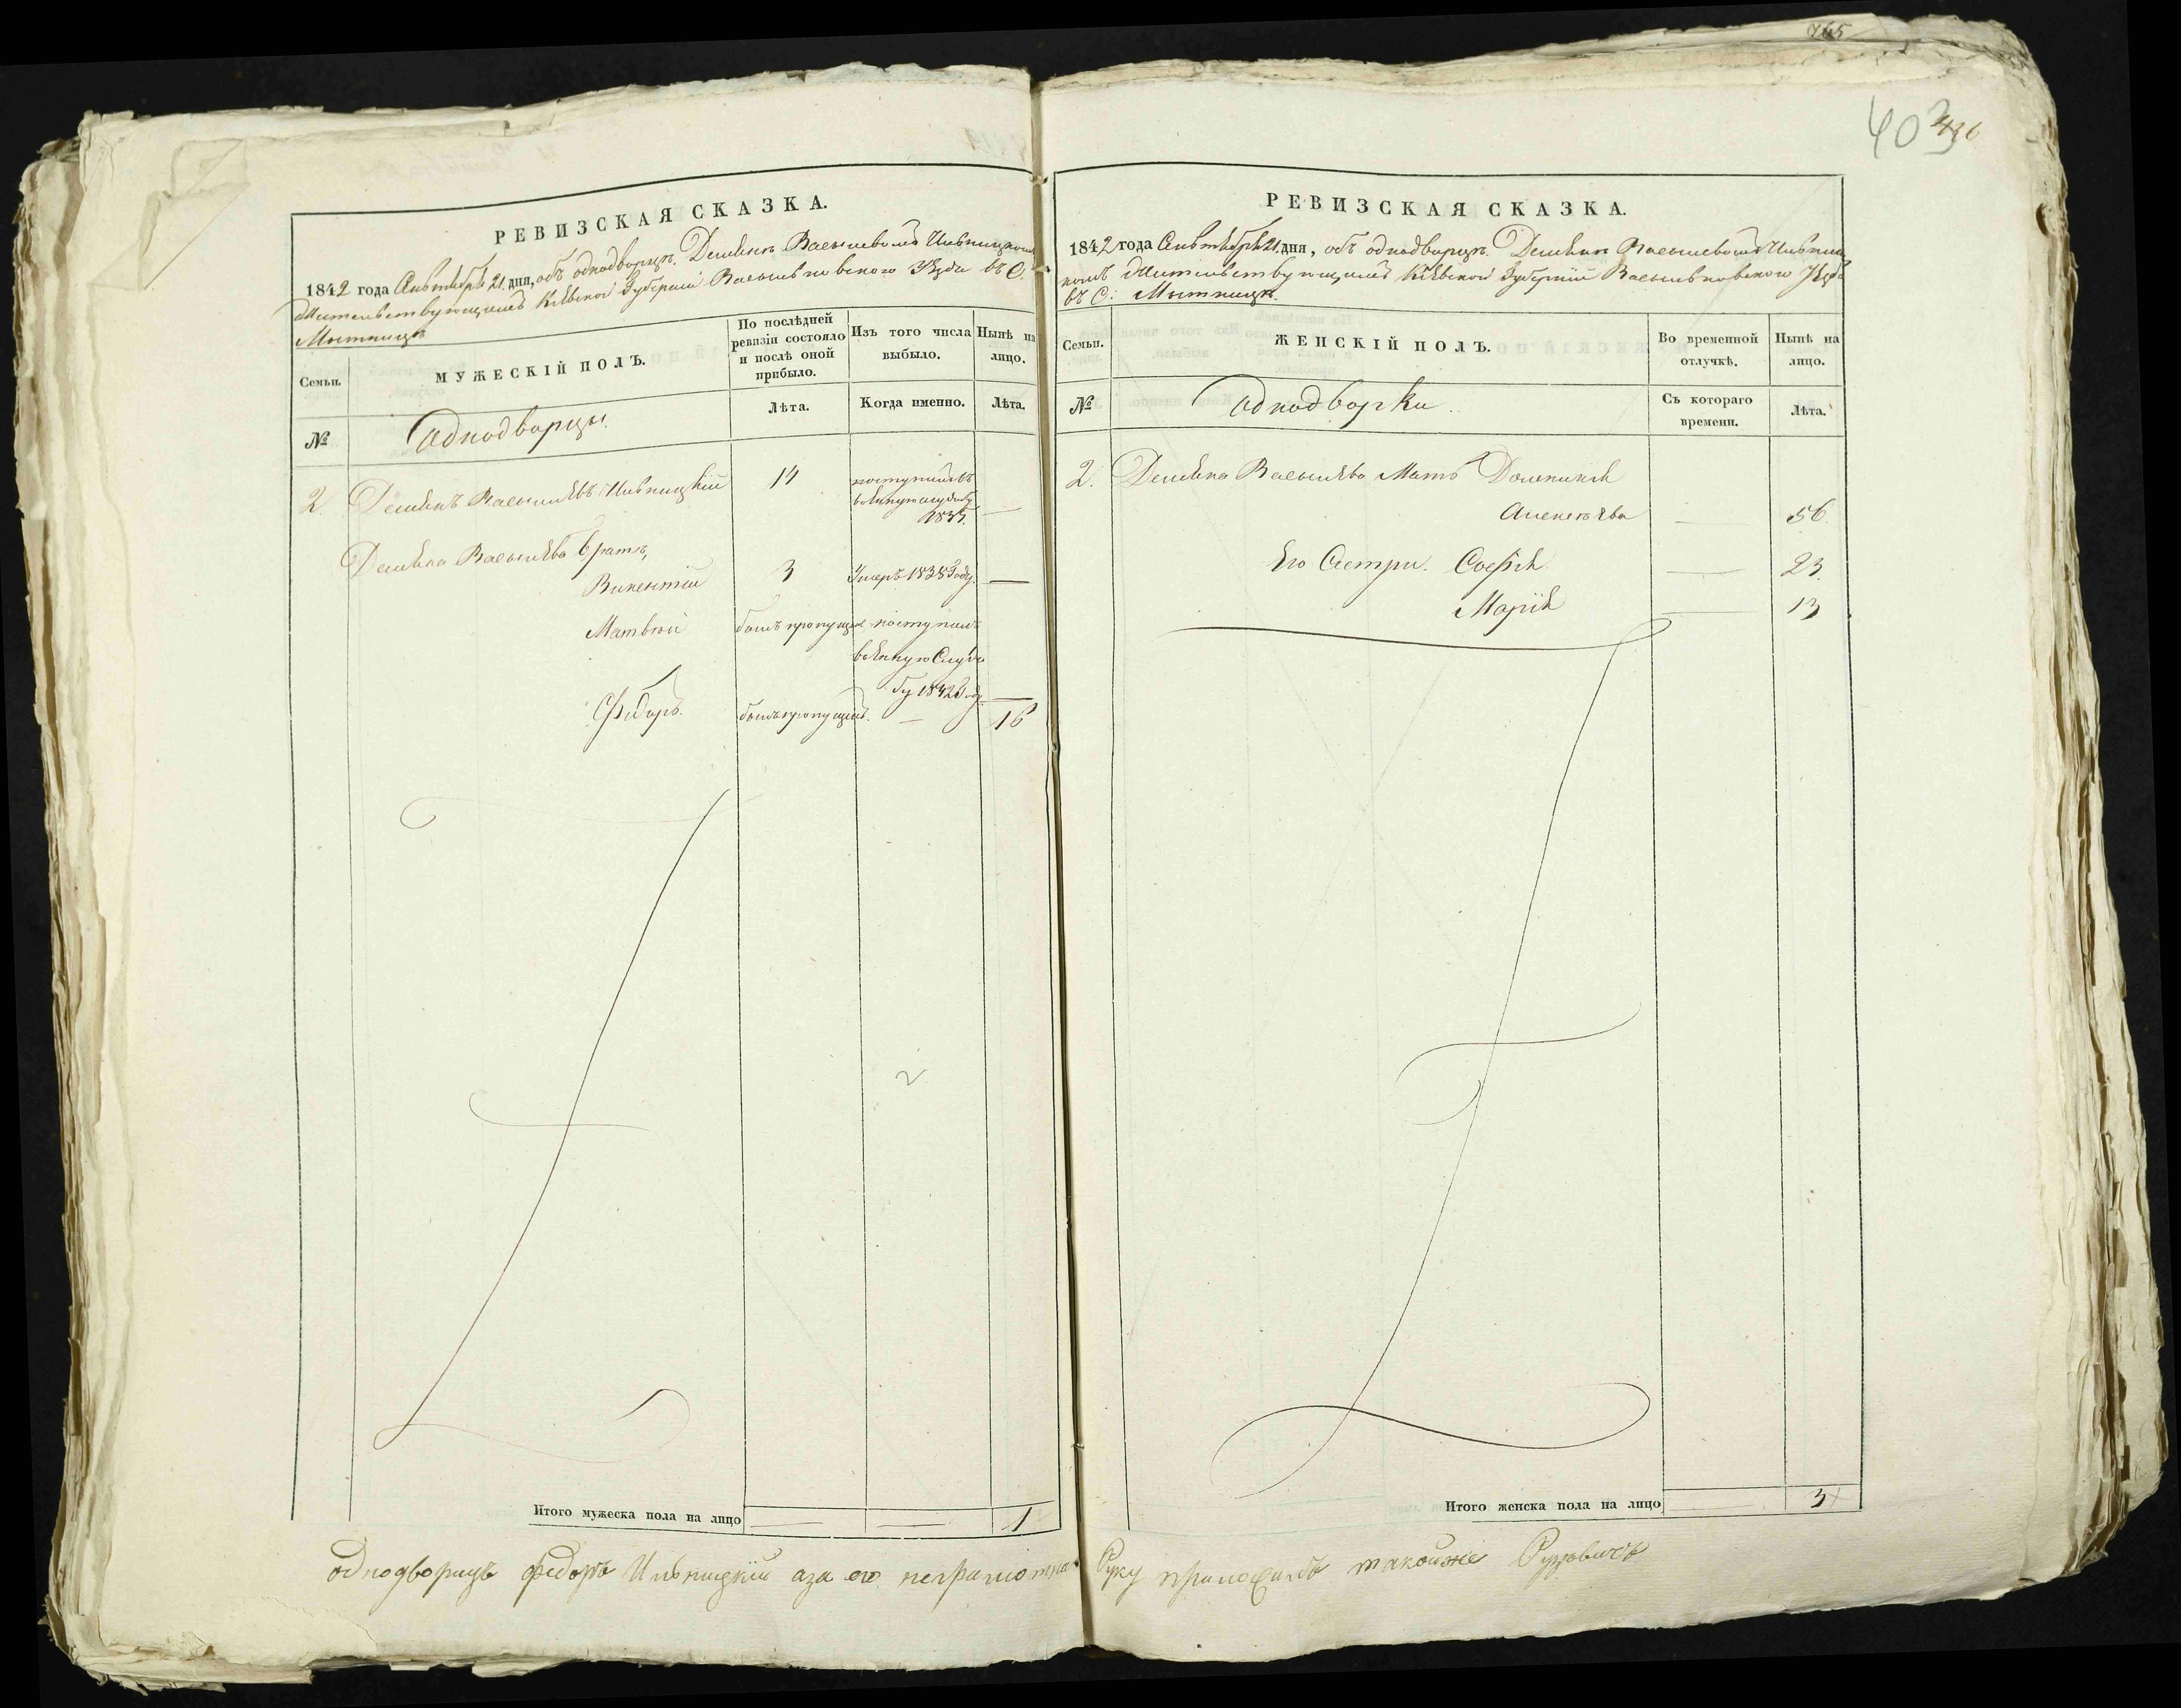 765
403
436
РЕВИЗСКАЯ СКАЗКА.
1842 года Сентября 21 дня, объ однодворцѣ Демьянѣ Васильевомъ Ильницкомъ
Жительствующимъ Кіевской Губерніи Васильковскаго Уѣзда въ С.
Мытницѣ
Семьи.
МУЖЕСКІЙ ПОЛЪ.
По послѣдней ревизіи состояло и послѣ оной прибыло.
Изъ того числа выбыло.
Нынѣ на лицо.
№
Однодворцы.
Лѣта.
Когда именно.
Лѣта.
2 Демьянъ Васильевъ Ильницкій 14 поступилъ въ
военную службу
1835. —
Демьяна Васильева братъ,
Викентій 3 Умеръ 1838 году. —
Матвѣй былъ пропущен поступилъ
военную служ
бу 1842 году —
Фёдоръ. былъ пропущенъ. — 16
2
Итого мужеска пола на лицо — — 1
РЕВИЗСКАЯ СКАЗКА.
1842 года Сентября 21 дня, объ однодворцѣ Демьянѣ Васильевомъ Ильниц
комъ Жительствующимъ Кіевской Губерніи Васильковского Уѣзда
въ С: Мытницѣ.
Семьи.
ЖЕНСКІЙ ПОЛЪ.
Во временной отлучкѣ.
Нынѣ на лицо.
№
Однодворки.
Съ котораго времени.
Лѣта.
2. Демьяна Васильева Мать Доминика
Алексѣева — 56.
Его Сестри. Софія — 23.
Марія — 13
Итого женска пола на лицо 3
однодворицъ федоръ Ильницкій аза его неграмотна Руку приложилъ такойже